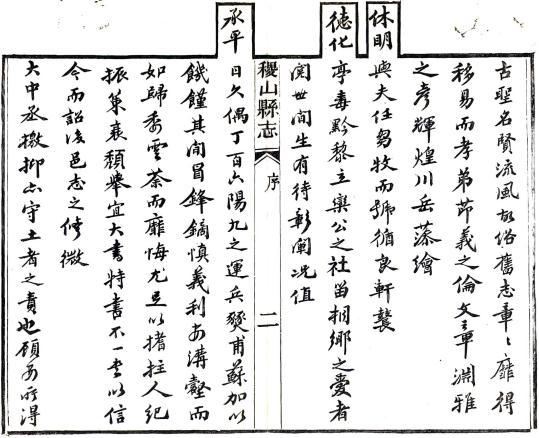 古聖名賢流風故俗舊志章〻靡得
移易而孝弟節義之倫文章淵雅
之彥輝煌川岳藻繪
休明與夫任芻牧而號循良軒
德化亭毒黔黎立欒公之社留桐鄉之愛者
閱世間生有待彰闡況值
稷山縣志 序 二
承平日久偶丁百六陽九之運兵燹甫蘇加以
饑饉其間冒鋒鏑慎義利安溝壑而
如歸委荼而靡悔尤足以搘拄人紀
振策衰頹舉宜大書特書不一書以信
今而詔後邑志之修微
大中丞檄抑亦守土者之責也顧安所得